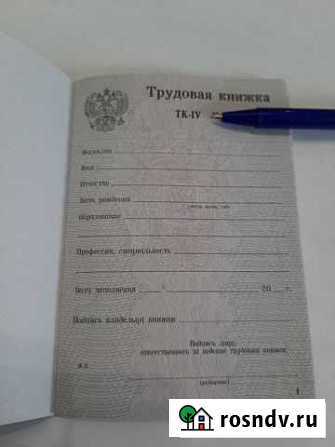 Трудовая книжка
ТК-IV
Фамилия
Имя
Отчество
Дата рождения
(число, месяц, год)
Образование
Профессия, специальность
Дата заполнения 20 г.
Подпись владельца книжки
Подпись лица,
ответственного за ведение трудовых книжек
М.П.
(разборчиво)
1
rosndv.ru